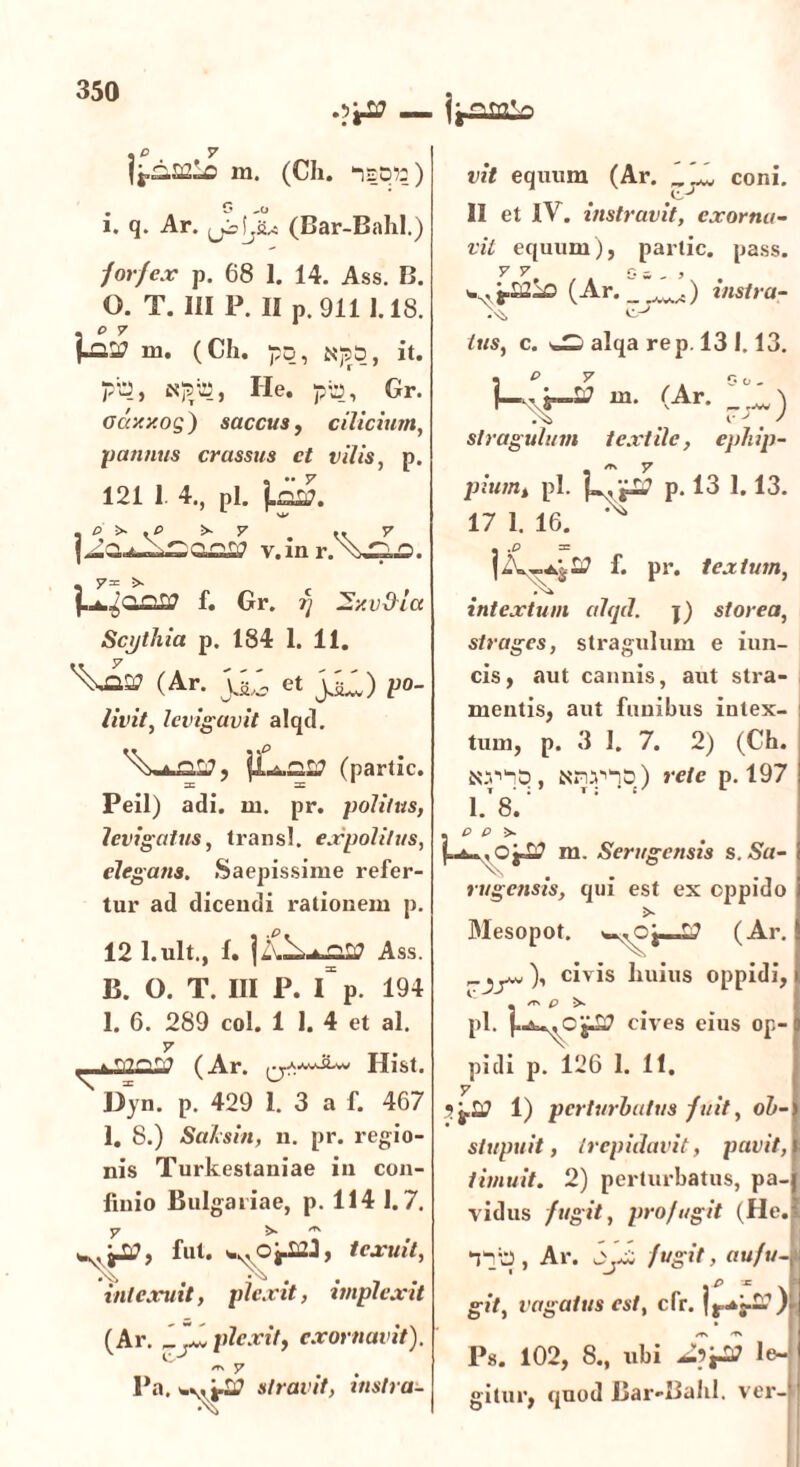 350
ܡܣܦܪܐ — ܣܪܕ.
ܡܣܦܪܐ m. (Ch. מִסְפַּר)
i. q. Ar. مقراض (Bar-Bahl.)
forfex p. 68 l. 14. Ass. B.
O. T. III P. II p. 911 l. 18.
ܣܩܐ m. (Ch. סַק, סַקָּא, it.
שַׂק, שַׂקָּא, He. שַׂק, Gr.
σάκκος) saccus, cilicium,
pannus crassus et vilis, p.
121 l. 4., pl. ܣܩ̈ܐ.
v. in r. ܩܒܠ.
ܣܩܘܬܝܐ f. Gr. ἡ Σκυθία
Scythia p. 184 l. 11.
ܣܩܠ (Ar. صقل et سقل) po-
livit, levigavit alqd.
ܣܩܝܠ, ܣܩܝܠܐ (partic.
Peil) adi. m. pr. politus,
levigatus, transl. expolitus,
elegans. Saepissime refer-
tur ad dicendi rationem p.
12 l. ult., f. ܣܩܝܠܬܐ Ass.
B. O. T. III P. I p. 194
l. 6. 289 col. 1 l. 4 et al.
ܣܩܣܝܢ (Ar. سقسين Hist.
Dyn. p. 429 l. 3 a f. 467
l. 8.) Saksin, n. pr. regio-
nis Turkestaniae in con-
finio Bulgariae, p. 114 l. 7.
ܣܪܓ, fut. ܢܣܪܘܓ, texuit,
intexuit, plexit, implexit
(Ar. سرّج plexit, exornavit).
Pa. ܣܪܓ stravit, instra-
vit equum (Ar. سرج coni.
II et IV. instravit, exorna-
vit equum), partic. pass.
ܡܣܪܓ (Ar. مسرّج) instra-
tus, c. ܒ alqa rep. 13 l. 13.
ܣܪܓܐ m. (Ar. سرج)
stragulum textile, ephip-
pium, pl. ܣܪ̈ܓܐ p. 13 l. 13.
17 l. 16.
ܣܪܝܓܬܐ f. pr. textum,
intextum alqd. 1) storea,
strages, stragulum e iun-
cis, aut cannis, aut stra-
mentis, aut funibus intex-
tum, p. 3 l. 7. 2) (Ch.
סְרִיגָא, סְרִיגְתָא) rete p. 197
l. 8.
ܣܪܘܓܝܐ m. Serugensis s. Sa-
rugensis, qui est ex oppido
Mesopot. ܣܪܘܓ (Ar.
سروج), civis huius oppidi,
pl. ܣܪ̈ܘܓܝܐ cives eius op-
pidi p. 126 l. 11.
ܣܪܕ 1) perturbatus fuit, ob-
stupuit, trepidavit, pavit,
timuit. 2) perturbatus, pa-
vidus fugit, profugit (He.
שָׂרַד, Ar. شرد fugit, aufu-
git, vagatus est, cfr. ܣܪܝܕܐ)
Ps. 102, 8., ubi ܣܪܕܬ le-
gitur, quod Bar-Bahl. ver-